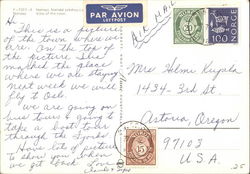 PAR AVION
LUFTPOST
AIR MAIL
Hi
This is a picture
of the town where we
are. On the top
of the picture I've
marked the place
where we are staying
next week we will
fly to Oslo.
we are going on
bus tours & going to
take a boat tour
through the Fjords.
Have lots of pictures
to show you when
we get back. Love
NORGE
100
15
Mrs Helmi Kupila
1434- 3rd St.
Astoria, Oregon
97103
U.S.A.
25